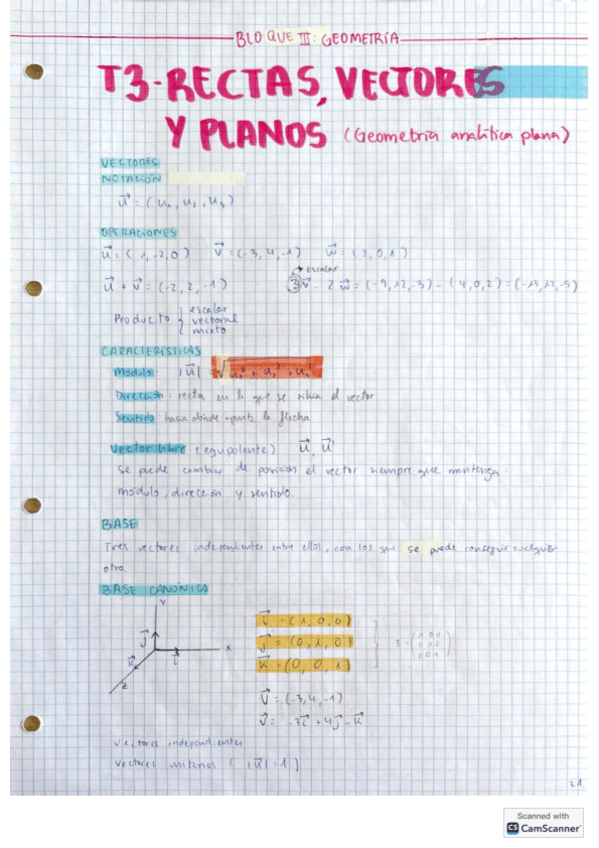 BLOQUE III: GEOMETRÍA
T3-RECTAS, VECTORES
Y PLANOS (Geometría analítica plana)
VECTORES
NOTACIÓN
u⃗ = (u₁, u₂, u₃)
OPERACIONES
u⃗ = (1, -2, 0) v⃗ = (-3, 4, -1) w⃗ = (2, 0, 1)
→ escalar
u⃗ + v⃗ = (-2, 2, -1) 3v⃗ - 2w⃗ = (-9, 12, -3) - (4, 0, 2) = (-13, 12, -5)
Producto { escalar
vectorial
mixto
CARACTERÍSTICAS
Módulo: |u⃗| = √u₁² + u₂² + u₃²
Dirección: recta en la que se situa el vector
Sentido: hacia dónde apunta la flecha
Vector libre (equipolente) u⃗, u⃗'
Se puede cambiar de posición el vector siempre que mantenga:
módulo, dirección y sentido.
BASE
Tres vectores independientes entre ellos, con los que se puede conseguir cualquier
otro.
BASE CANÓNICA
Y
j⃗
k⃗
i⃗
X
Z
i⃗ = (1, 0, 0)
j⃗ = (0, 1, 0)
k⃗ = (0, 0, 1)
v⃗ = (-3, 4, -1)
v⃗ = -3i⃗ + 4j⃗ - k⃗
Vectores independientes
Vectores unitarios (|u⃗| = 1)
Scanned with
CS CamScanner